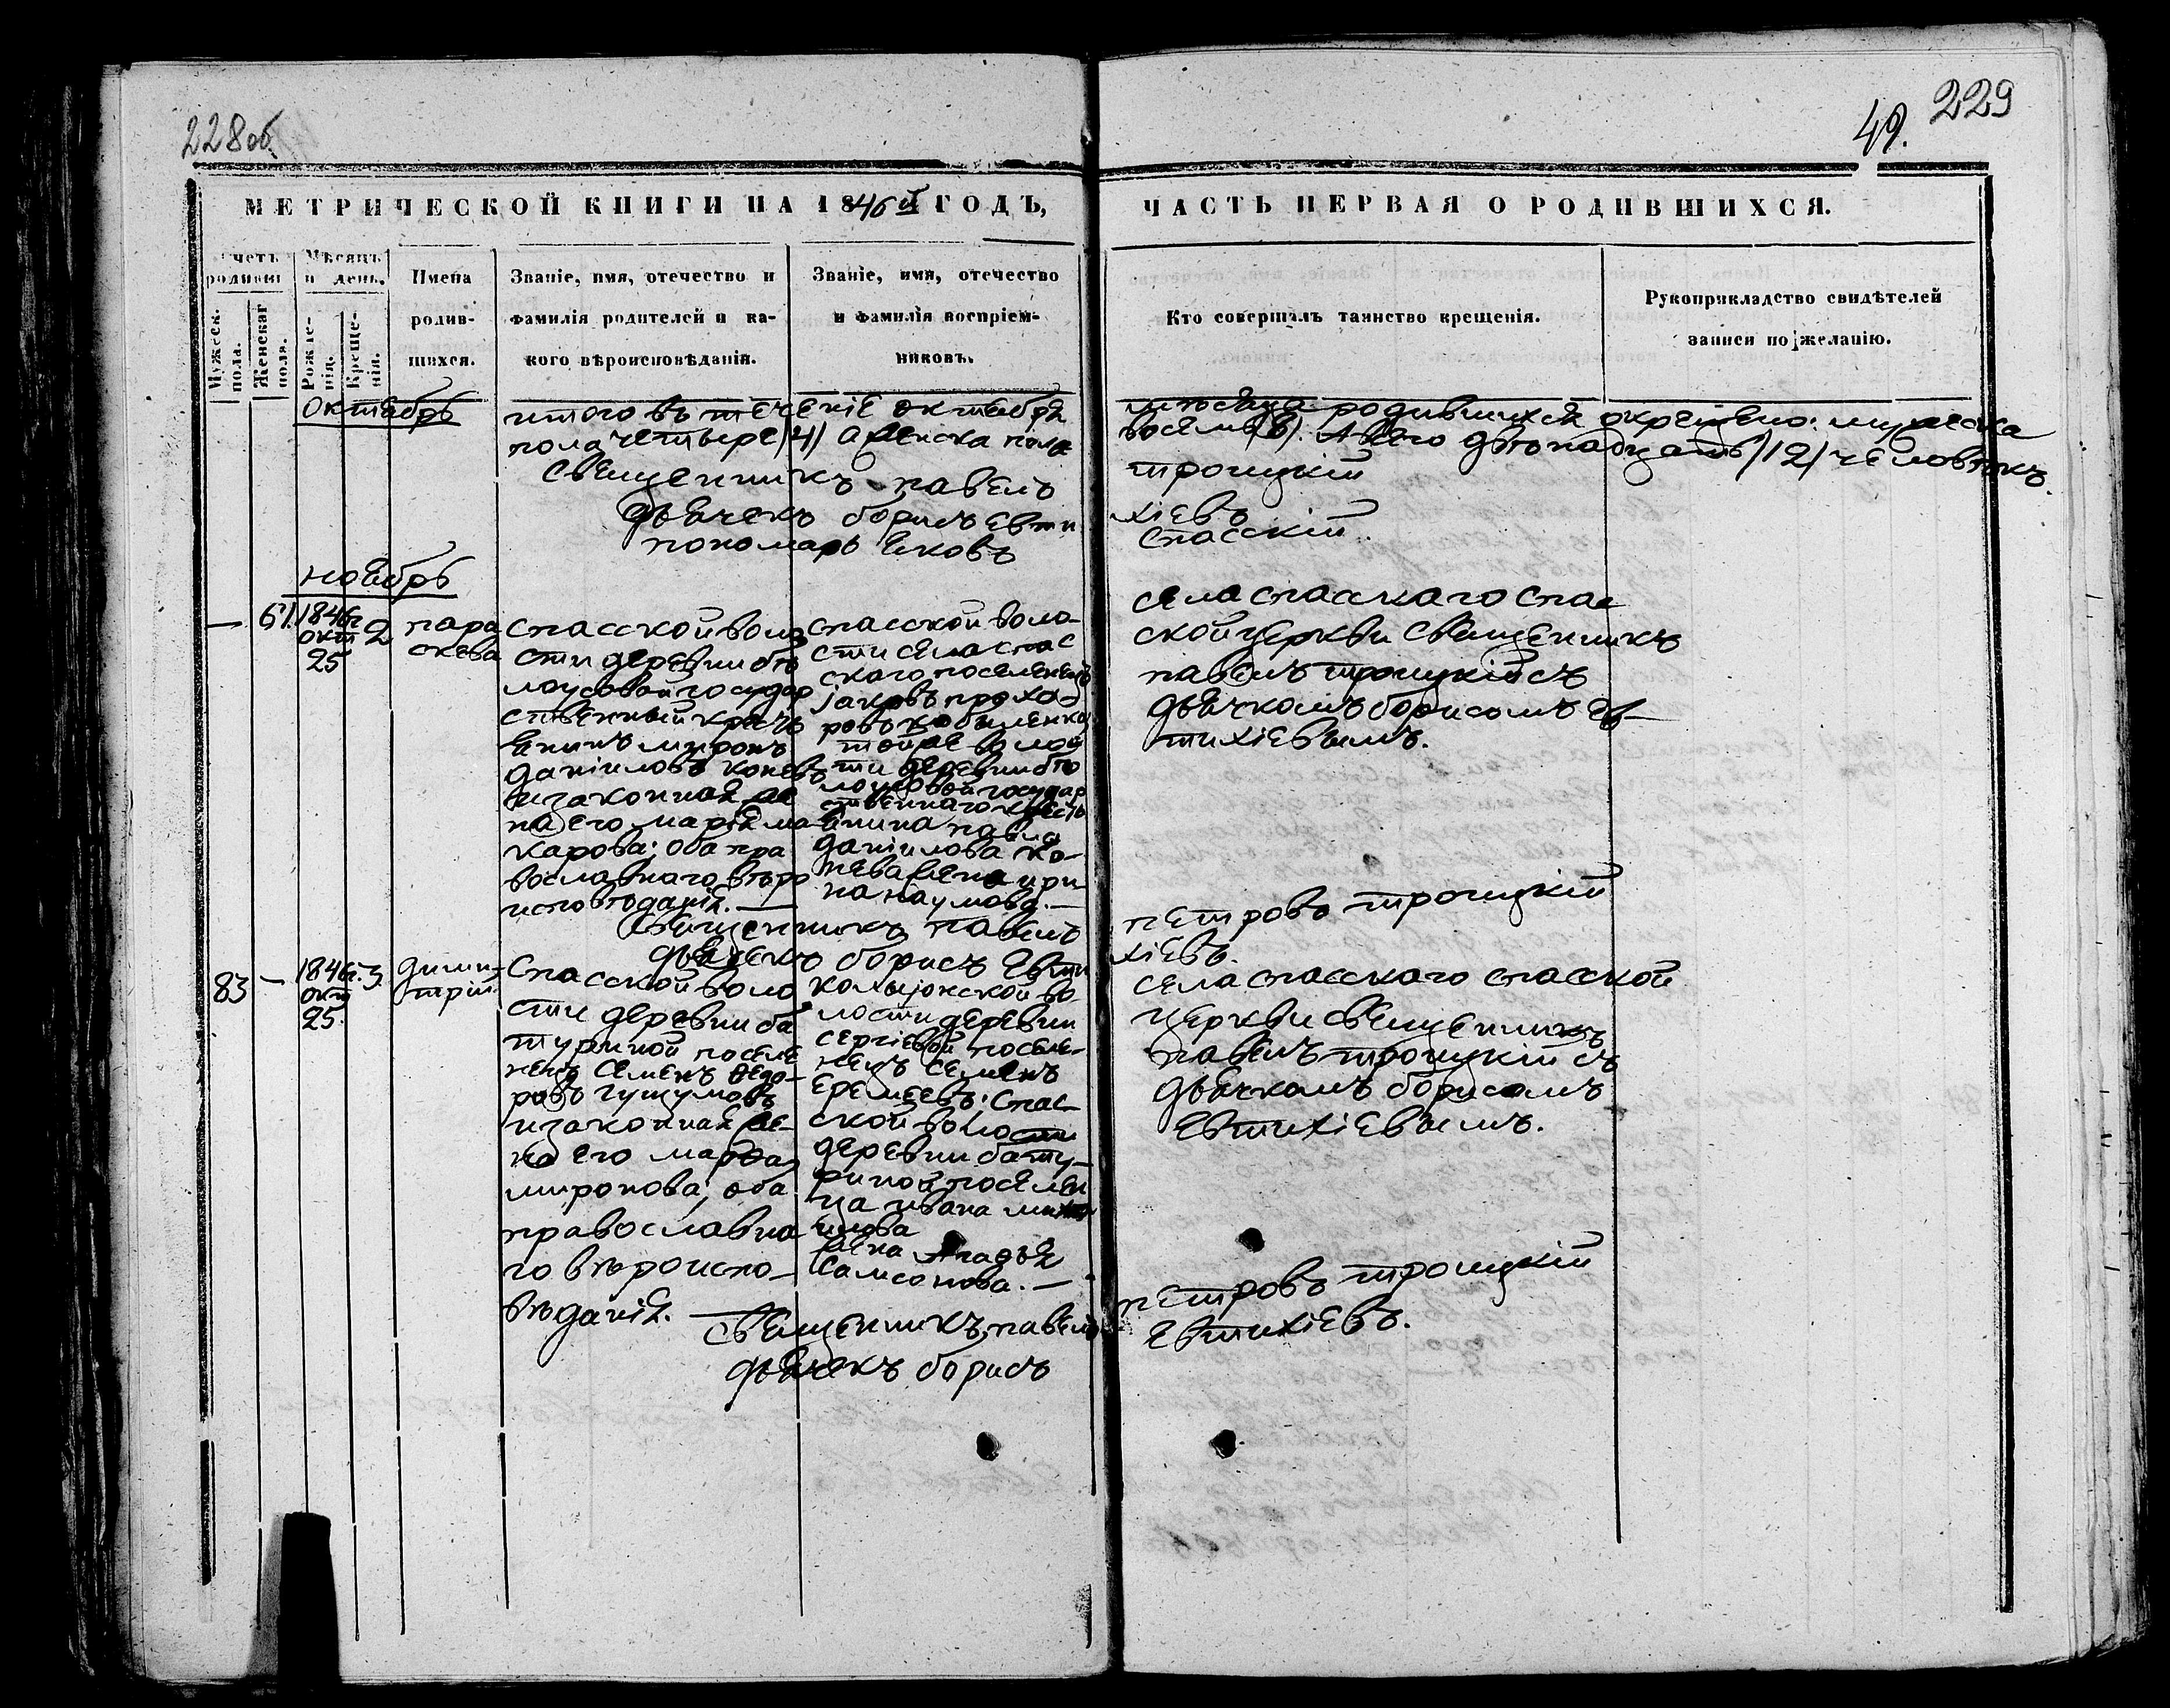 228 об.
49.
229
МЕТРИЧЕСКОЙ КНИГИ НА 1846й ГОДЪ,
ЧАСТЬ ПЕРВАЯ О РОДИВШИХСЯ.
Счетъ родивш
Мужеск. пола.
Женскаг пола.
Мѣсяцъ и день.
Рожде-
нія.
Креще-
нія.
Имена
родив-
шихся.
Званіе, имя, отечество и
фамилія родителей и ка-
кого вѣроисповѣданія.
Званіе, имя, отечество
и фамилія воспріем-
никовъ.
Кто совершалъ таинство крещенія.
Рукоприкладство свидѣтелей
записи по желанію.
октябрь
итого въ теченіе октября мѣсяца родившихся окрещено: мужеска
пола четыре (4) а женска пола восемь (8). А всего двѣнадцать (12) человѣкъ.
Священникъ павелъ троицкій
дьячекъ борисъ Евтихіевъ
пономарь Яковъ Спасскій.
ноябрь
—
61.
1846г
окт
25
2
пара
скева
спасской воло
сти деревни бѣ
лоусовой государ
ственный кресть
янинъ миронъ
даніиловъ коневъ
и законная же
на его марія ма
карова; оба пра
вославнаго вѣро
исповѣданія. —
спасской воло-
сти села спас
скаго поселенецъ
іаковъ прохо-
ровъ
той же волос
ти деревни бѣ
лоусовой государ
ственнаго кресть
янина павла
даніилова ко-
нева жена ири
на наумова. —
села спасскаго спас
ской церкви священникъ
павелъ троицкій съ
дьячкомъ борисомъ Ев-
тихіевымъ.
Священникъ павелъ петровъ троицкій
дьячекъ борисъ Евтихіевъ.
83
—
1846г.
окт
25.
3.
дими-
трій
Спасской воло
сти деревни ба
туриной поселе
нецъ Семенъ Ѳедо-
ровъ
и законная же-
на его марѳа
миронова; оба
православна
го вѣроиспо-
вѣданія.
волости деревни
сергіевой поселе-
нецъ Семенъ
Еремеевъ; Спас-
ской волости
деревни бату-
риной поселен
ца ивана михаи
лова
жена Агафья
Самсонова. —
села спасскаго спасской
церкви священникъ
павелъ троицкій съ
дьячкомъ борисомъ
Евтихіевымъ.
Священникъ павелъ петровъ троицкій
дьячекъ борисъ Евтихіевъ.